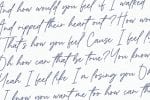 And how would you feel if I walked
And ripped their heart out? How wou
That's how you feel Cause I feel
Oh how can that be true? You know
Yeah I feel like I'm losing you
I know you want me to how can th